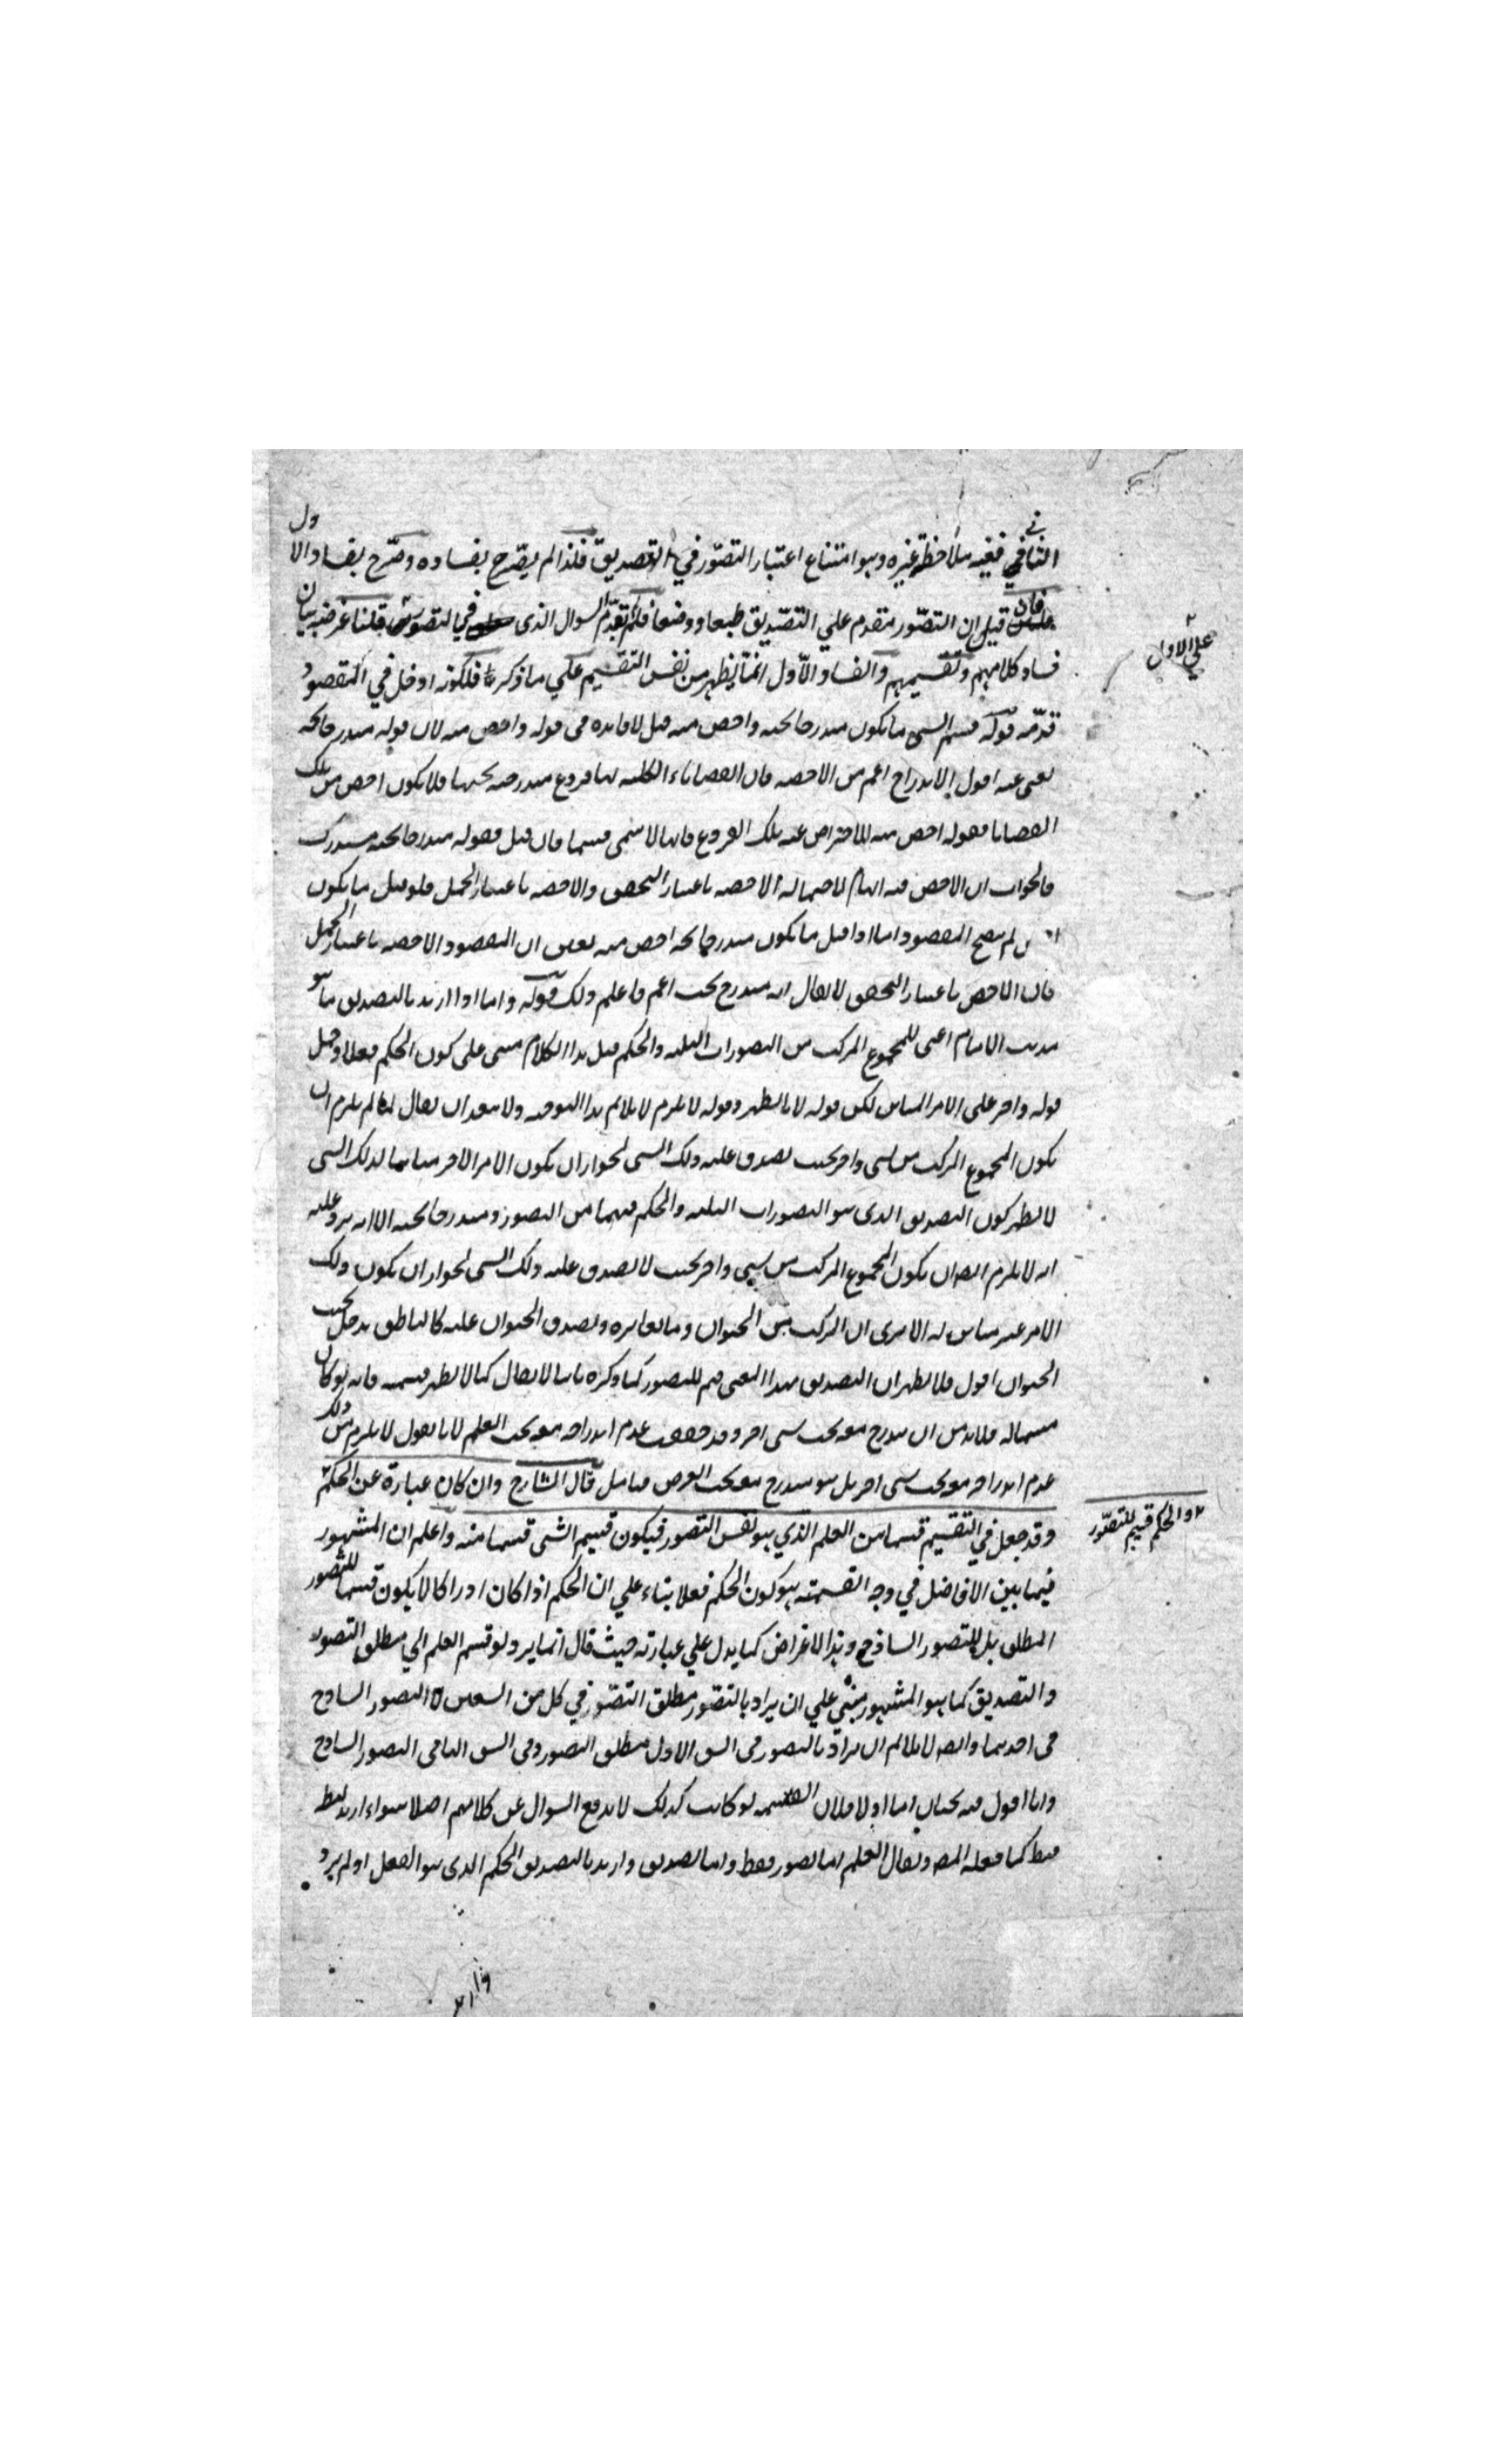 الثاني ففيه ملاحظة غيره وهو امتناع اعتبار التصور في التصديق فلذا لم يصرح بفساده وصرح بفساد الاول
فان قيل ان التصور متقدم علي التصديق طبعا ووضعا فلم تقدم السوال الذي في لتصور قلنا غرضه بيان
علي الاول
فساد كلامهم وتقسيمهم والفساد الاول انما يظهر من نفس التقسيم علي ما ذكر فلكونه ادخل في المقصود
قدمه قوله قسم الشي ما يكون مندرجا تحته واخص منه قيل لا فايده في قوله واخص منه لان قوله مندرجا تحته
يغني عنه اقول الاندراج اعم من الاخصيه فان القضايا الكليه لها فروع مندرجه تحتها فلا يكون اخص من تلك
القضايا فقوله اخص منه للاحتراس عنه تلك الفروع فانها لا تسمى قسيما فان قيل فقوله مندرجا تحته مستدرك
فالجواب ان الاخص فيه ابهام لاحتماله الاخصيه باعتبار التحقق والاخصيه باعتبار الحمل فلو قيل ما يكون
لم يتضح المقصود اما اذا قيل ما يكون مندرجا تحته اخص منه تعين ان المقصود الاخصيه باعتبار الحمل
فان الاخص باعتبار التحقق لا يقال انه مندرج تحت اعم فاعلم ذلك قوله واما اذا اريد بالتصديق ما هو
مذهب الامام اعني المجموع المركب من التصورات الثلثه والحكم قيل هذا الكلام مبني على كون الحكم فعلا وحمل
قوله واخر على الامر المباين لكن قوله لا يظهر وقوله لا يلزم لا يلائم هذا التوجيه ولا يبعد ان يقال لما لم يلزم ان
يكون المجموع المركب من شي واخر بحيث يصدق عليه ذلك الشي لجواز ان يكون الامر الاخر مباينا لذلك الشي
لا يظهر كون التصديق الذي هو التصورات الثلثه والحكم قسما من التصور ومندرجا تحته الا انه يرد عليه
انه لا يلزم ايضا ان يكون المجموع المركب من شي واخر بحيث لا يصدق عليه ذلك الشي لجواز ان يكون ذلك
الامر غير مباين له الا يرى ان المركب من الحيوان وما يغايره ويصدق الحيوان عليه كالناطق يدخل تحت
الحيوان اقول فلا يظهر ان التصديق بهذا المعنى قسم للتصور كما ذكره ثانيا لا يقال كما لا يظهر قسميته فانه لو كان
قسيما له فلا بد من ان يندرج معه تحت شي اخر وقد حققت عدم اندراجه معه تحت العلم لانا نقول لا يلزم من ذلك
عدم اندراجه معه تحت شي اخر بل هو مندرج معه تحت العرض فتامل قال الشارح وان كان عبارة عن الحكم
والحكم قسيم للتصور
وقد جعل في التقسيم قسما من العلم الذي هو نفس التصور فيكون قسيم الشي قسما منه واعلم ان المشهور
فيما بين الافاضل في وجه القسمة هو كون الحكم فعلا بناء علي ان الحكم اذا كان ادراكا لا يكون قسيما للتصور
المطلق بل للتصور الساذج وهذا الاعتراض كما يدل علي عبارته حيث قال انما يرد لو قسم العلم الي مطلق التصور
والتصديق كما هو المشهور مبني علي ان يراد بالتصور مطلق التصور في كل من الشقين لا التصور الساذج
في احدهما وايضا لا يلائم ان يراد بالتصور في الشق الاول مطلق التصور وفي الشق الثاني التصور الساذج
وانا اقول فيه بحثان اما اولا فلان القسمه لو كانت كذلك لا يندفع السوال عن كلامهم اصلا سواء اريد لفظ
فقط كما فعله المصنف ويقال العلم اما تصور فقط واما تصديق واريد بالتصديق الحكم الذي هو الفعل او لم يرد